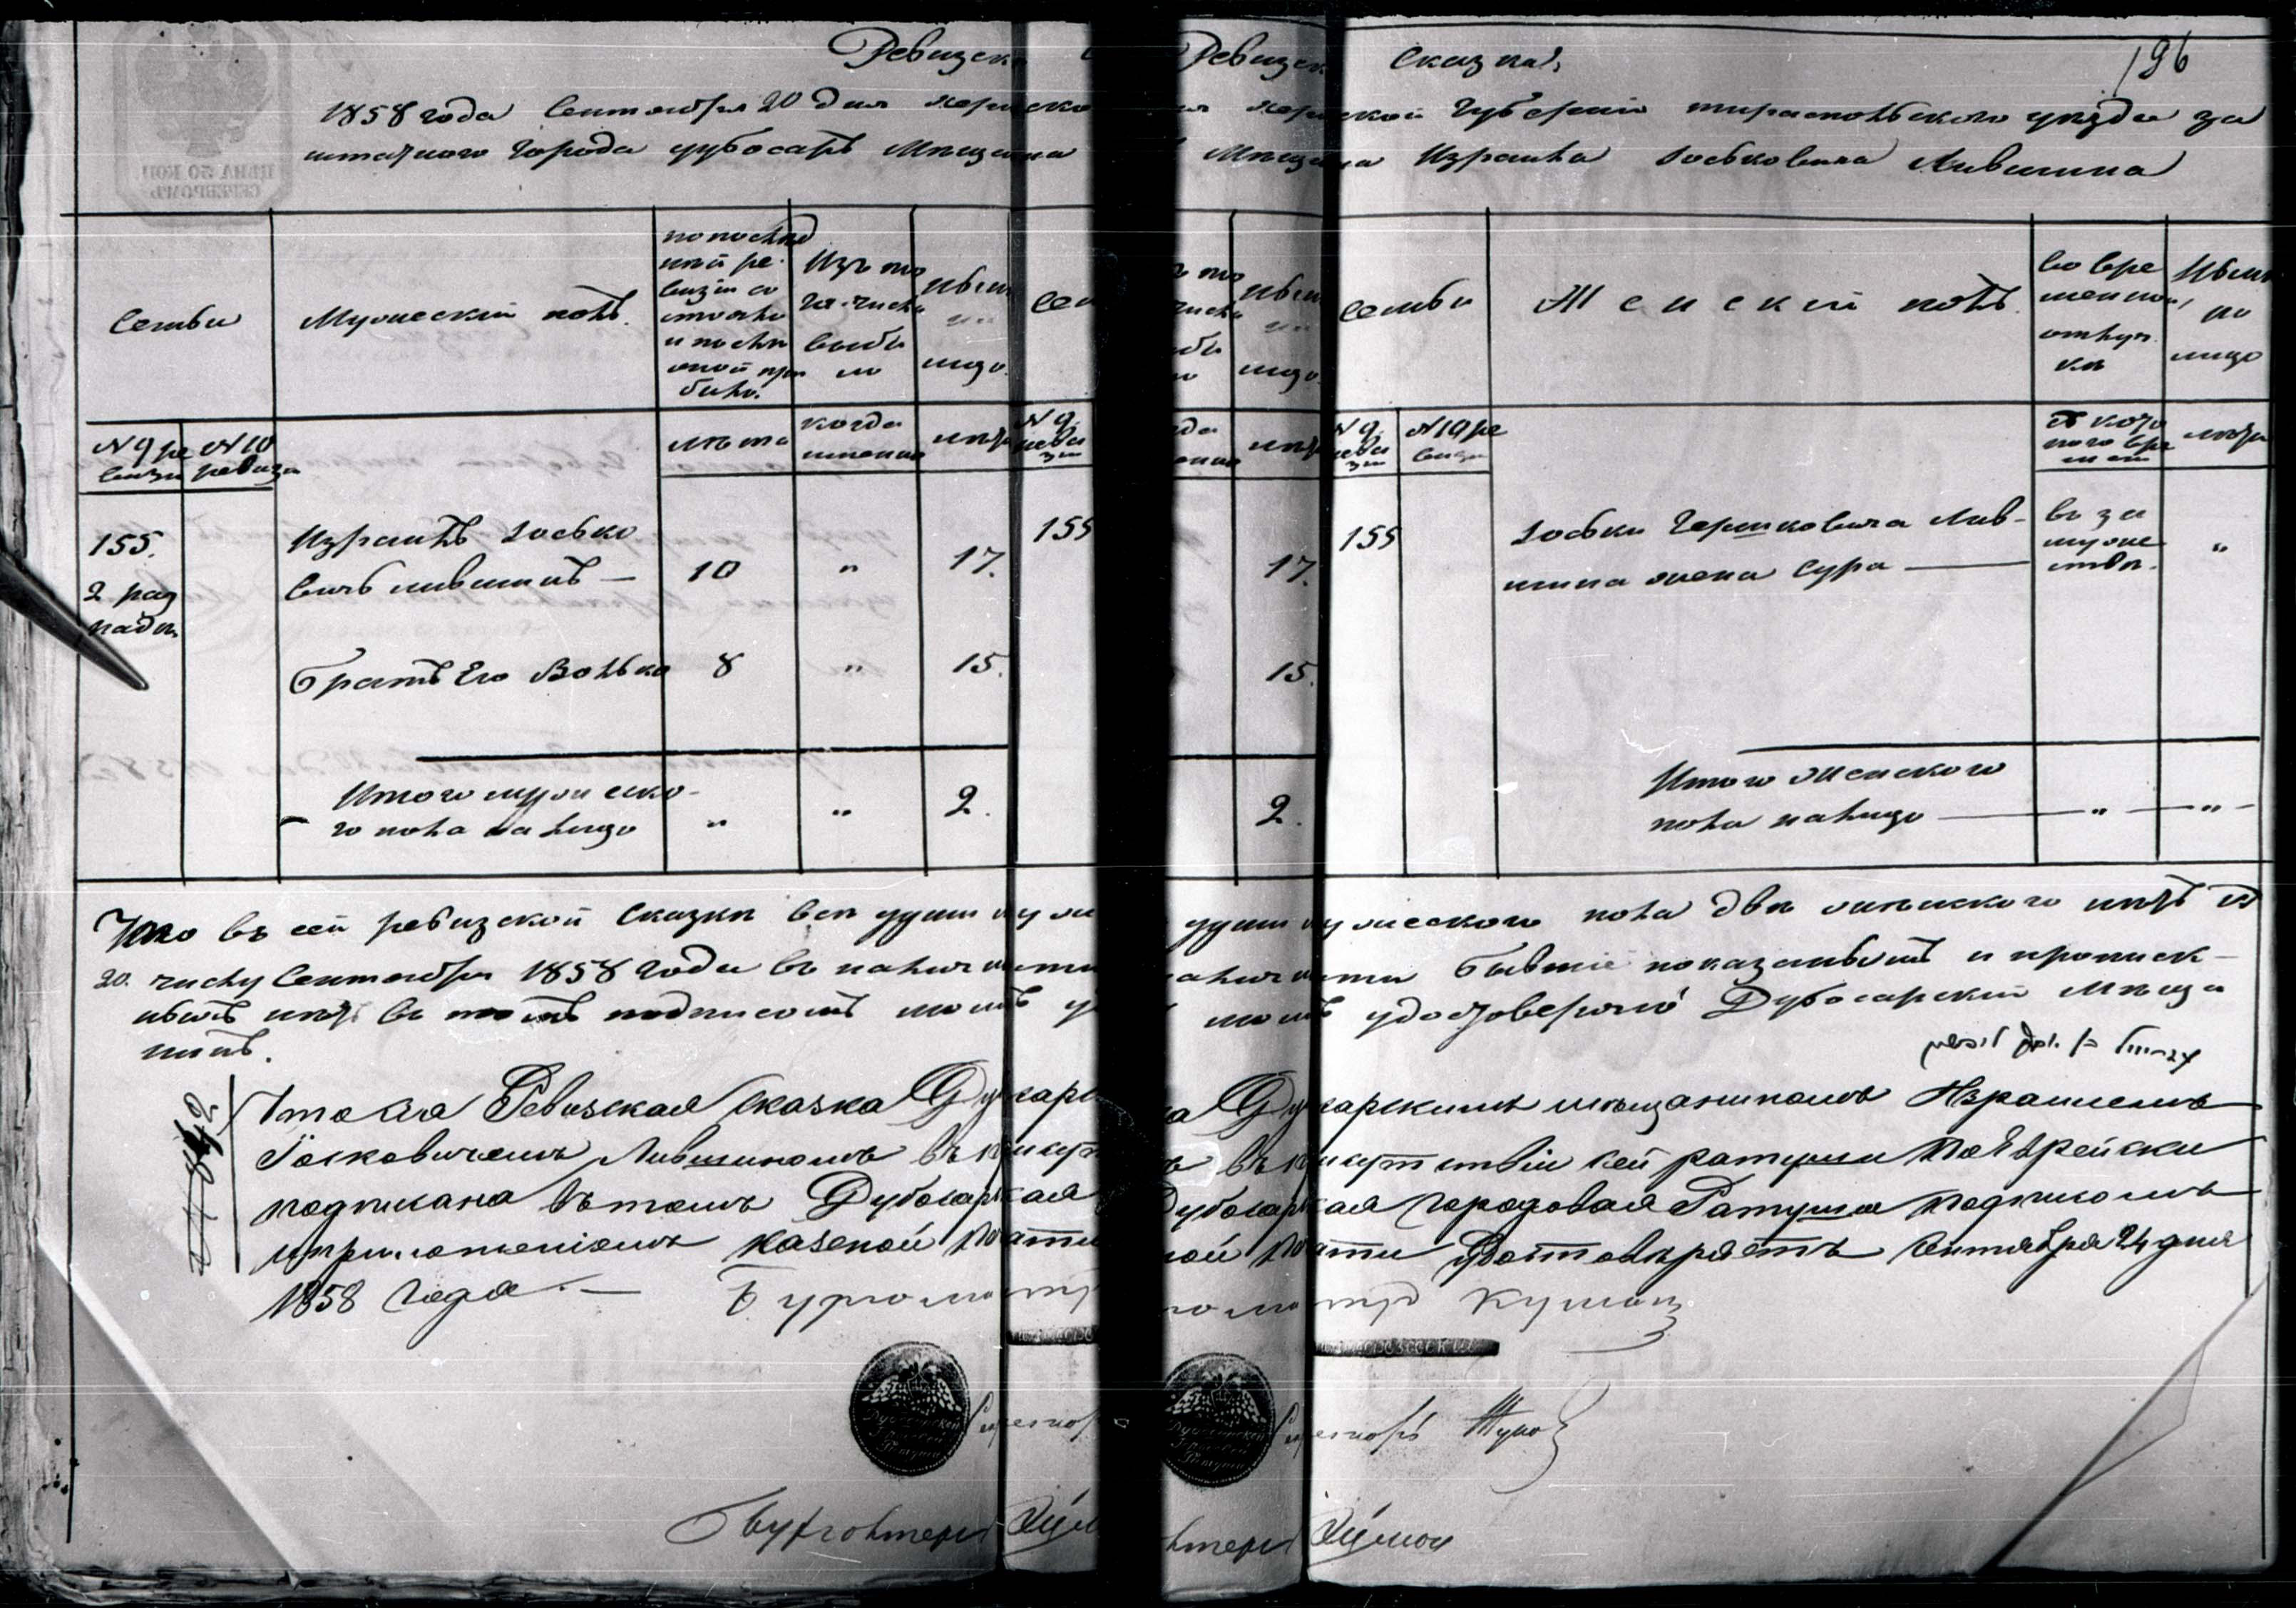 196
Ревизская Сказка
1858 года Сентября 20 дня Херсонской Губернiи тираспольского уезда за
штатного Города дубосаръ Мещанина Израиля Iоськовича Лившина
Семьи
Мужеский полъ.
по послед
ней ре
визiи со
стояло
и после
оной при
было.
Изъ то
го числа
выбы
ло
ныне
на
лицо.
Семьи
Женскiй полъ.
во вре
менной
отлуч
ке
Ныне
на
лицо
№ 9 ре
визiи
№ 10
ревизiи
лета
когда
именно
летъ
№ 9.
реви
зiи
№ 10 ре
визiи
съ кото
рого вре
мени
лета
155.
2 раз
ряда
Израиль Iосько
вичъ лившинъ —
10
"
17.
155
Iоськи Гершковича Лив-
шина жена Сура —
въ за
муже
стве.
"
Братъ Его Волько
8
"
15.
Итого мужеско-
го пола на лицо
"
"
2.
Итого Женского
пола налицо — " — " —
Что въ сей ревизской Сказки все души мужеского пола две женского нетъ къ
20. числу Сентября 1858 года въ наличности бывшiе показаны и прописн-
ыхъ нетъ въ томъ подписомъ моимъ удостоверяю Дубосарскiй Меща
нинъ.
Что сiя Ревизская сказка Дубосарскимъ мещаниномъ Израилемъ
Iосковичемъ Лившиномъ въ присутствiи сей ратуши по Еврейски
подписана въ томъ Дубосарская городовая Ратуша подписомъ
и приложенiемъ казеной печати удостоверяетъ Сентября 24 дня
1858 года. —
Бургомистр
Секретарь
Бухгалтеръ
ЦЕНА 50 КОП.
СЕРЕБРОМЪ